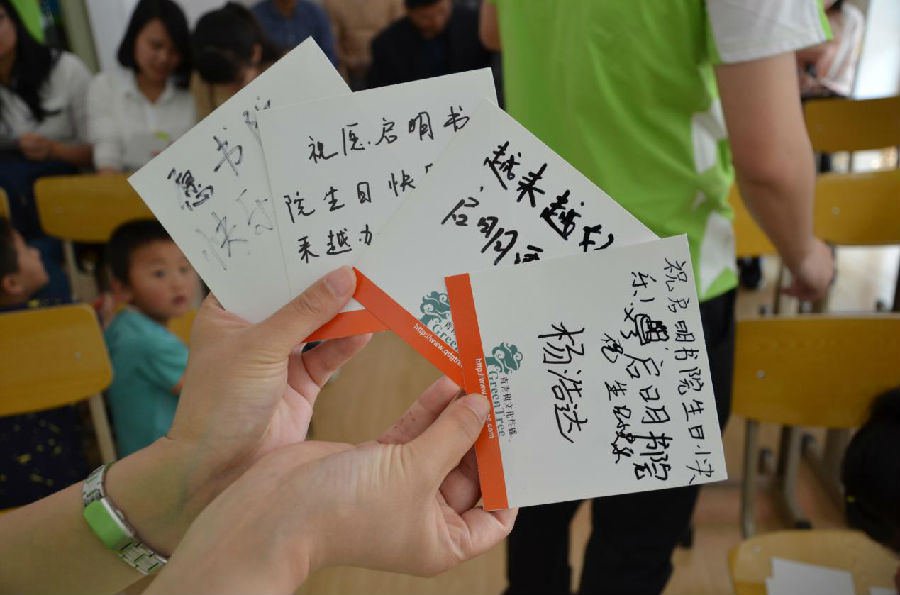 愿书院
快乐
祝愿启明书
院生日快
来越
越来越
启明
祝启明书院生日快
乐！
祝启明书院
生日快乐
杨浩达
GreenTree
http://www.